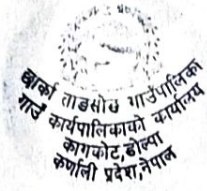 छार्का ताङसोङ गाउँपालिका
गाउँ कार्यपालिकाको कार्यालय
कागकोट,डोल्पा
कर्णाली प्रदेश,नेपाल